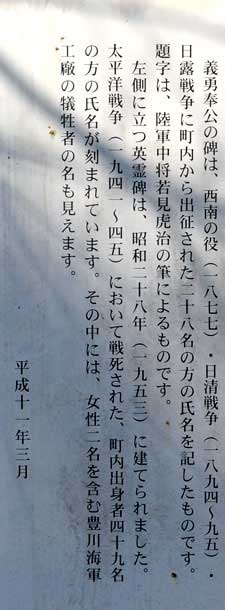 義勇奉公の碑は、西南の役（一八七七）・日清戦争（一八九四～九五）・
日露戦争に町内から出征された二十八名の方の氏名を記したものです。
題字は、陸軍中将若見虎治の筆によるものです。
左側に立つ英霊碑は、昭和二十八年（一九五三）に建てられました。
太平洋戦争（一九四一～四五）において戦死された、町内出身者四十九名
の方の氏名が刻まれています。その中には、女性二名を含む豊川海軍
工廠の犠牲者の名も見えます。
平成十一年三月